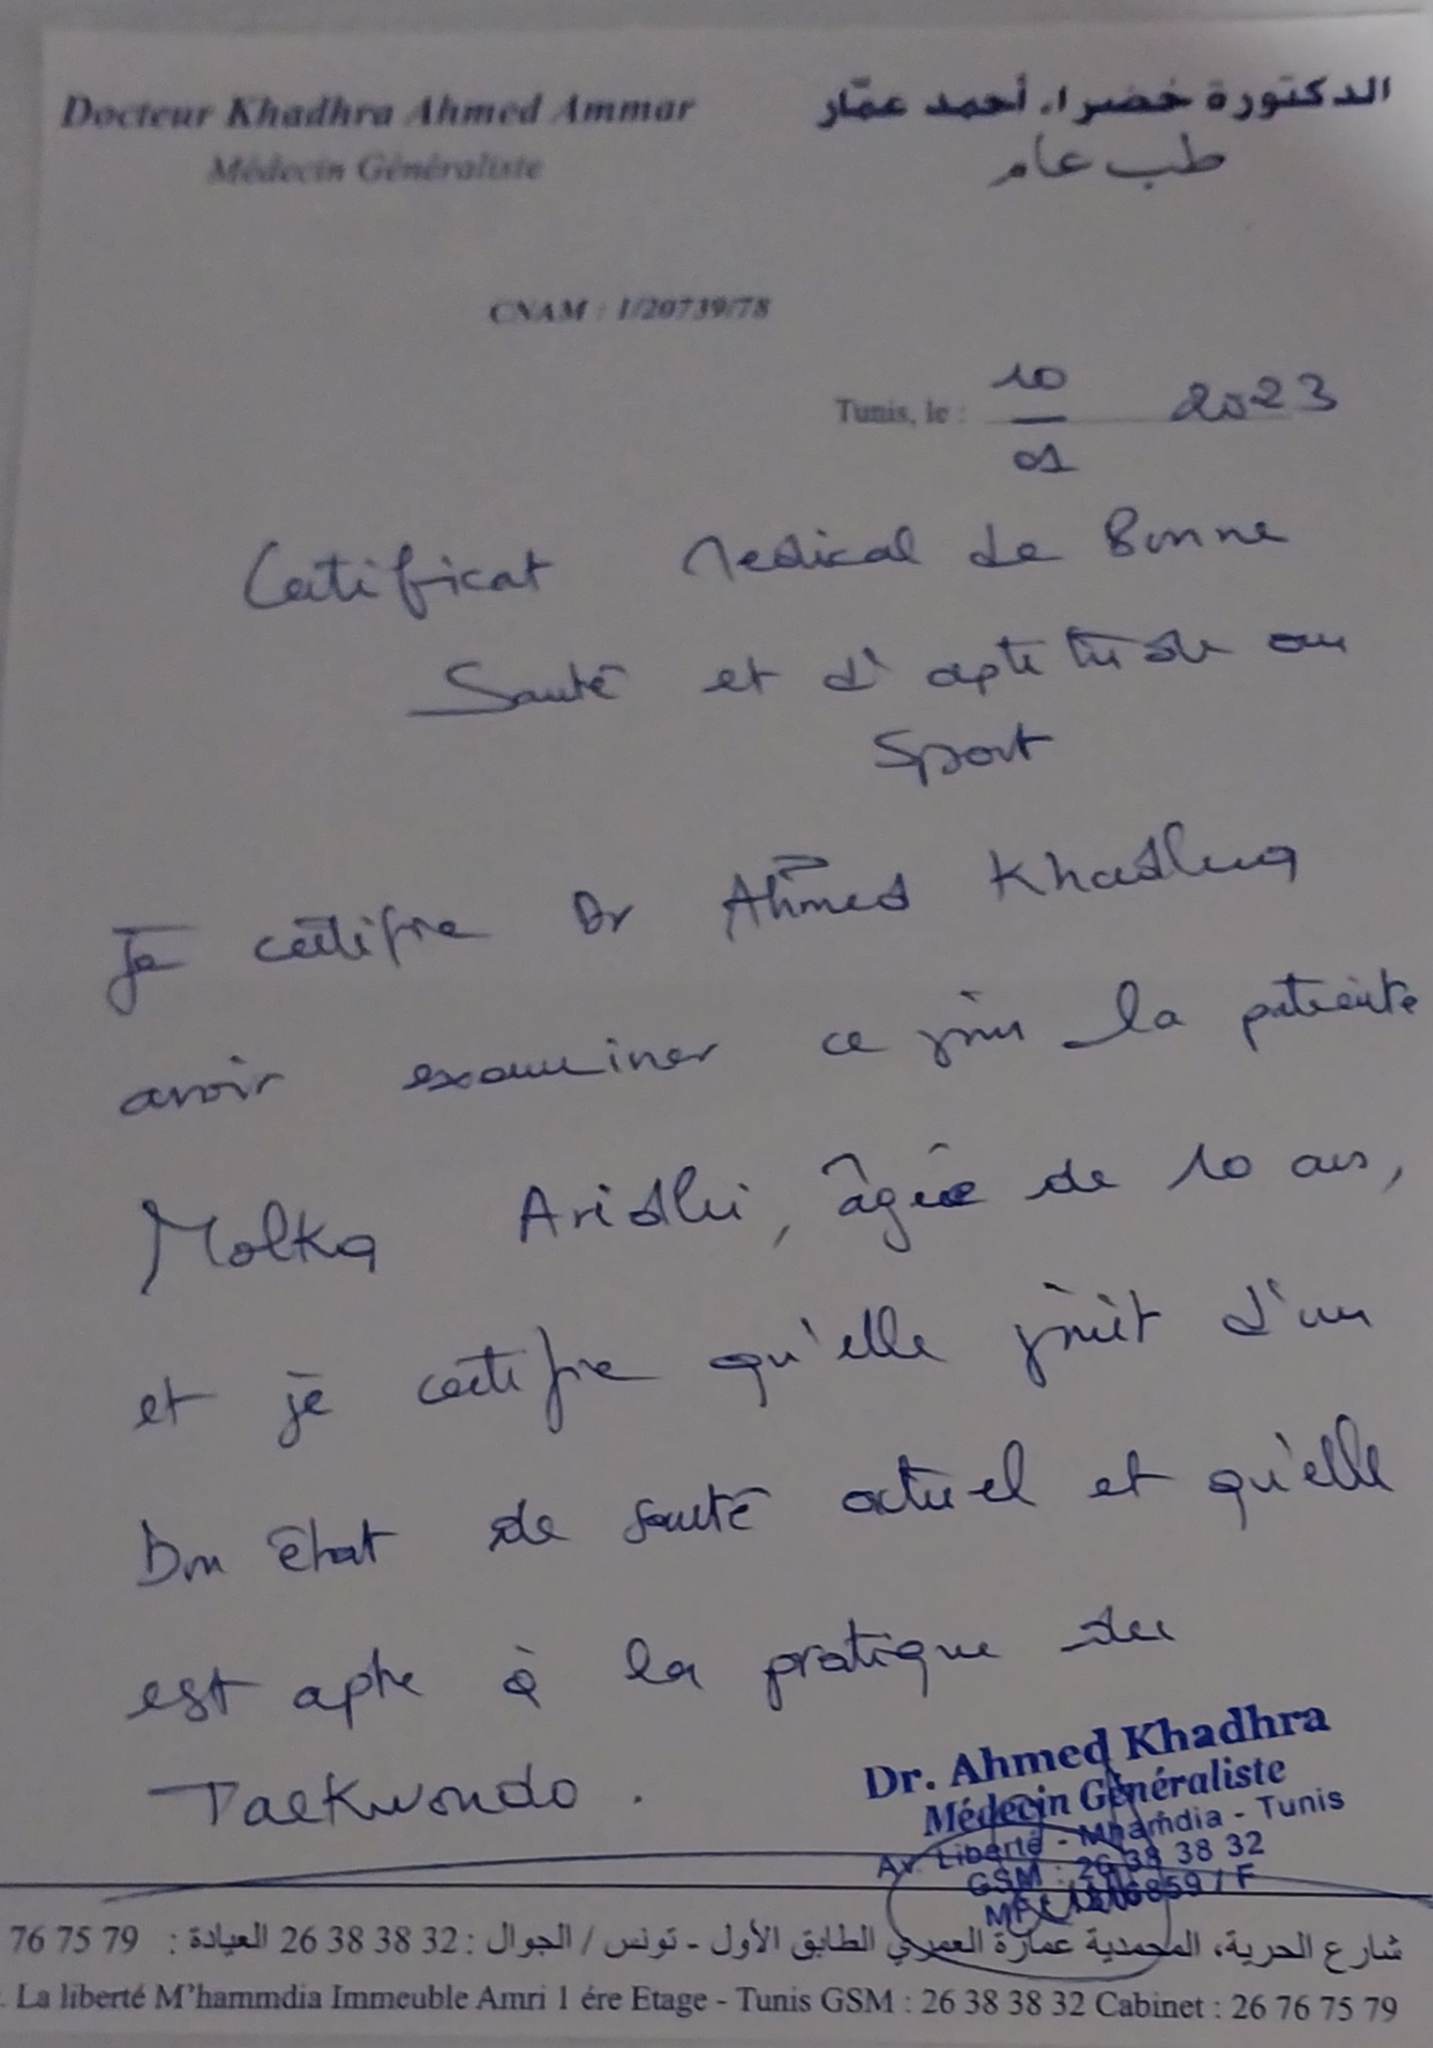 Docteur Khadhra Ahmed Ammar
الدكتورة خضراء أحمد عمّار
Médecin Généraliste
طب عام
CNAM : 1/20739/78
Tunis, le : 10/01 2023
Certificat Medical de Bonne
Santé et d'aptitude au
Sport
Je certifie Dr Ahmed Khadhra
avoir examiner ce jour la patiente
Molka Aridhi, âgée de 10 ans,
et je certifie qu'elle jouit d'un
Bon état de santé actuel et qu'elle
est apte à la pratique du
Taekwondo.
Dr. Ahmed Khadhra
Médecin Généraliste
Av. Liberté - Mhamdia - Tunis
GSM : 26 38 38 32
شارع الحرية، المحمدية عمارة العمري الطابق الأول - تونس / الجوال : 32 38 38 26 العيادة : 79 75 76
. La liberté M'hammdia Immeuble Amri 1 ére Etage - Tunis GSM : 26 38 38 32 Cabinet : 26 76 75 79